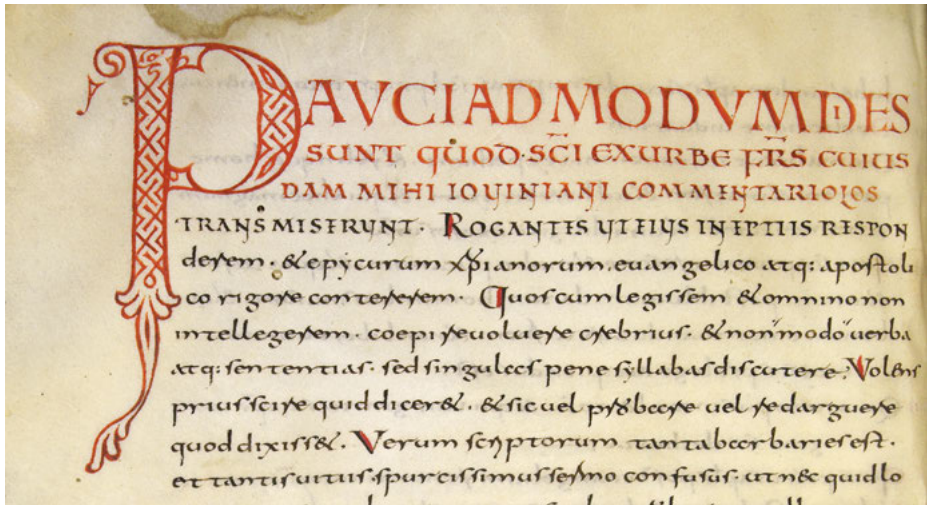 PAUCI ADMODUM DIES
SUNT QUOD·SC̄I EXURBE FR̄S CUIUS
DAM MIHI IOUINIANI COMMENTARIOLOS
TRANSMISERUNT· ROGANTES UT EIUS INEPTIIS RESPON
derem·&epycurum xp̄ianorum.euangelico atq: apostoli
co rigore contererem· Quos cum legissem &omnino non
intellegerem·coepi reuoluere crebrius·&non modo uerba
atq: sententias·sed singulas pene syllabas discutere. Volens
prius scire quid dicer&·&sic uel probare uel redarguere
quod dixiss&. Verum scriptorum tanta barbaries est·
et tantis uitiis spurcissimus sermo confusus·ut nec quid lo